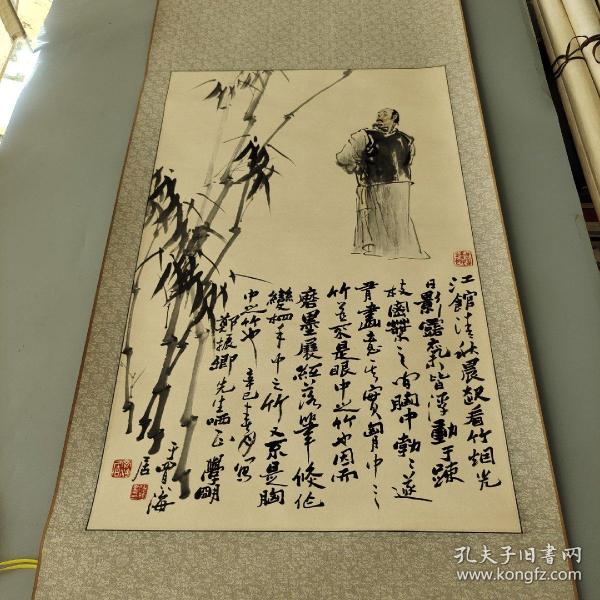 江館清秋晨起看竹烟光
日影露氣皆浮動于疎
枝密葉之間胸中勃勃遂
有畫意其實胸中之
竹並不是眼中之竹也因而
磨墨展紙落筆倏作
變相手中之竹又不是胸
中之竹也 辛巳
鄭振卿先生哂正
孔夫子旧书网
www.kongfz.com